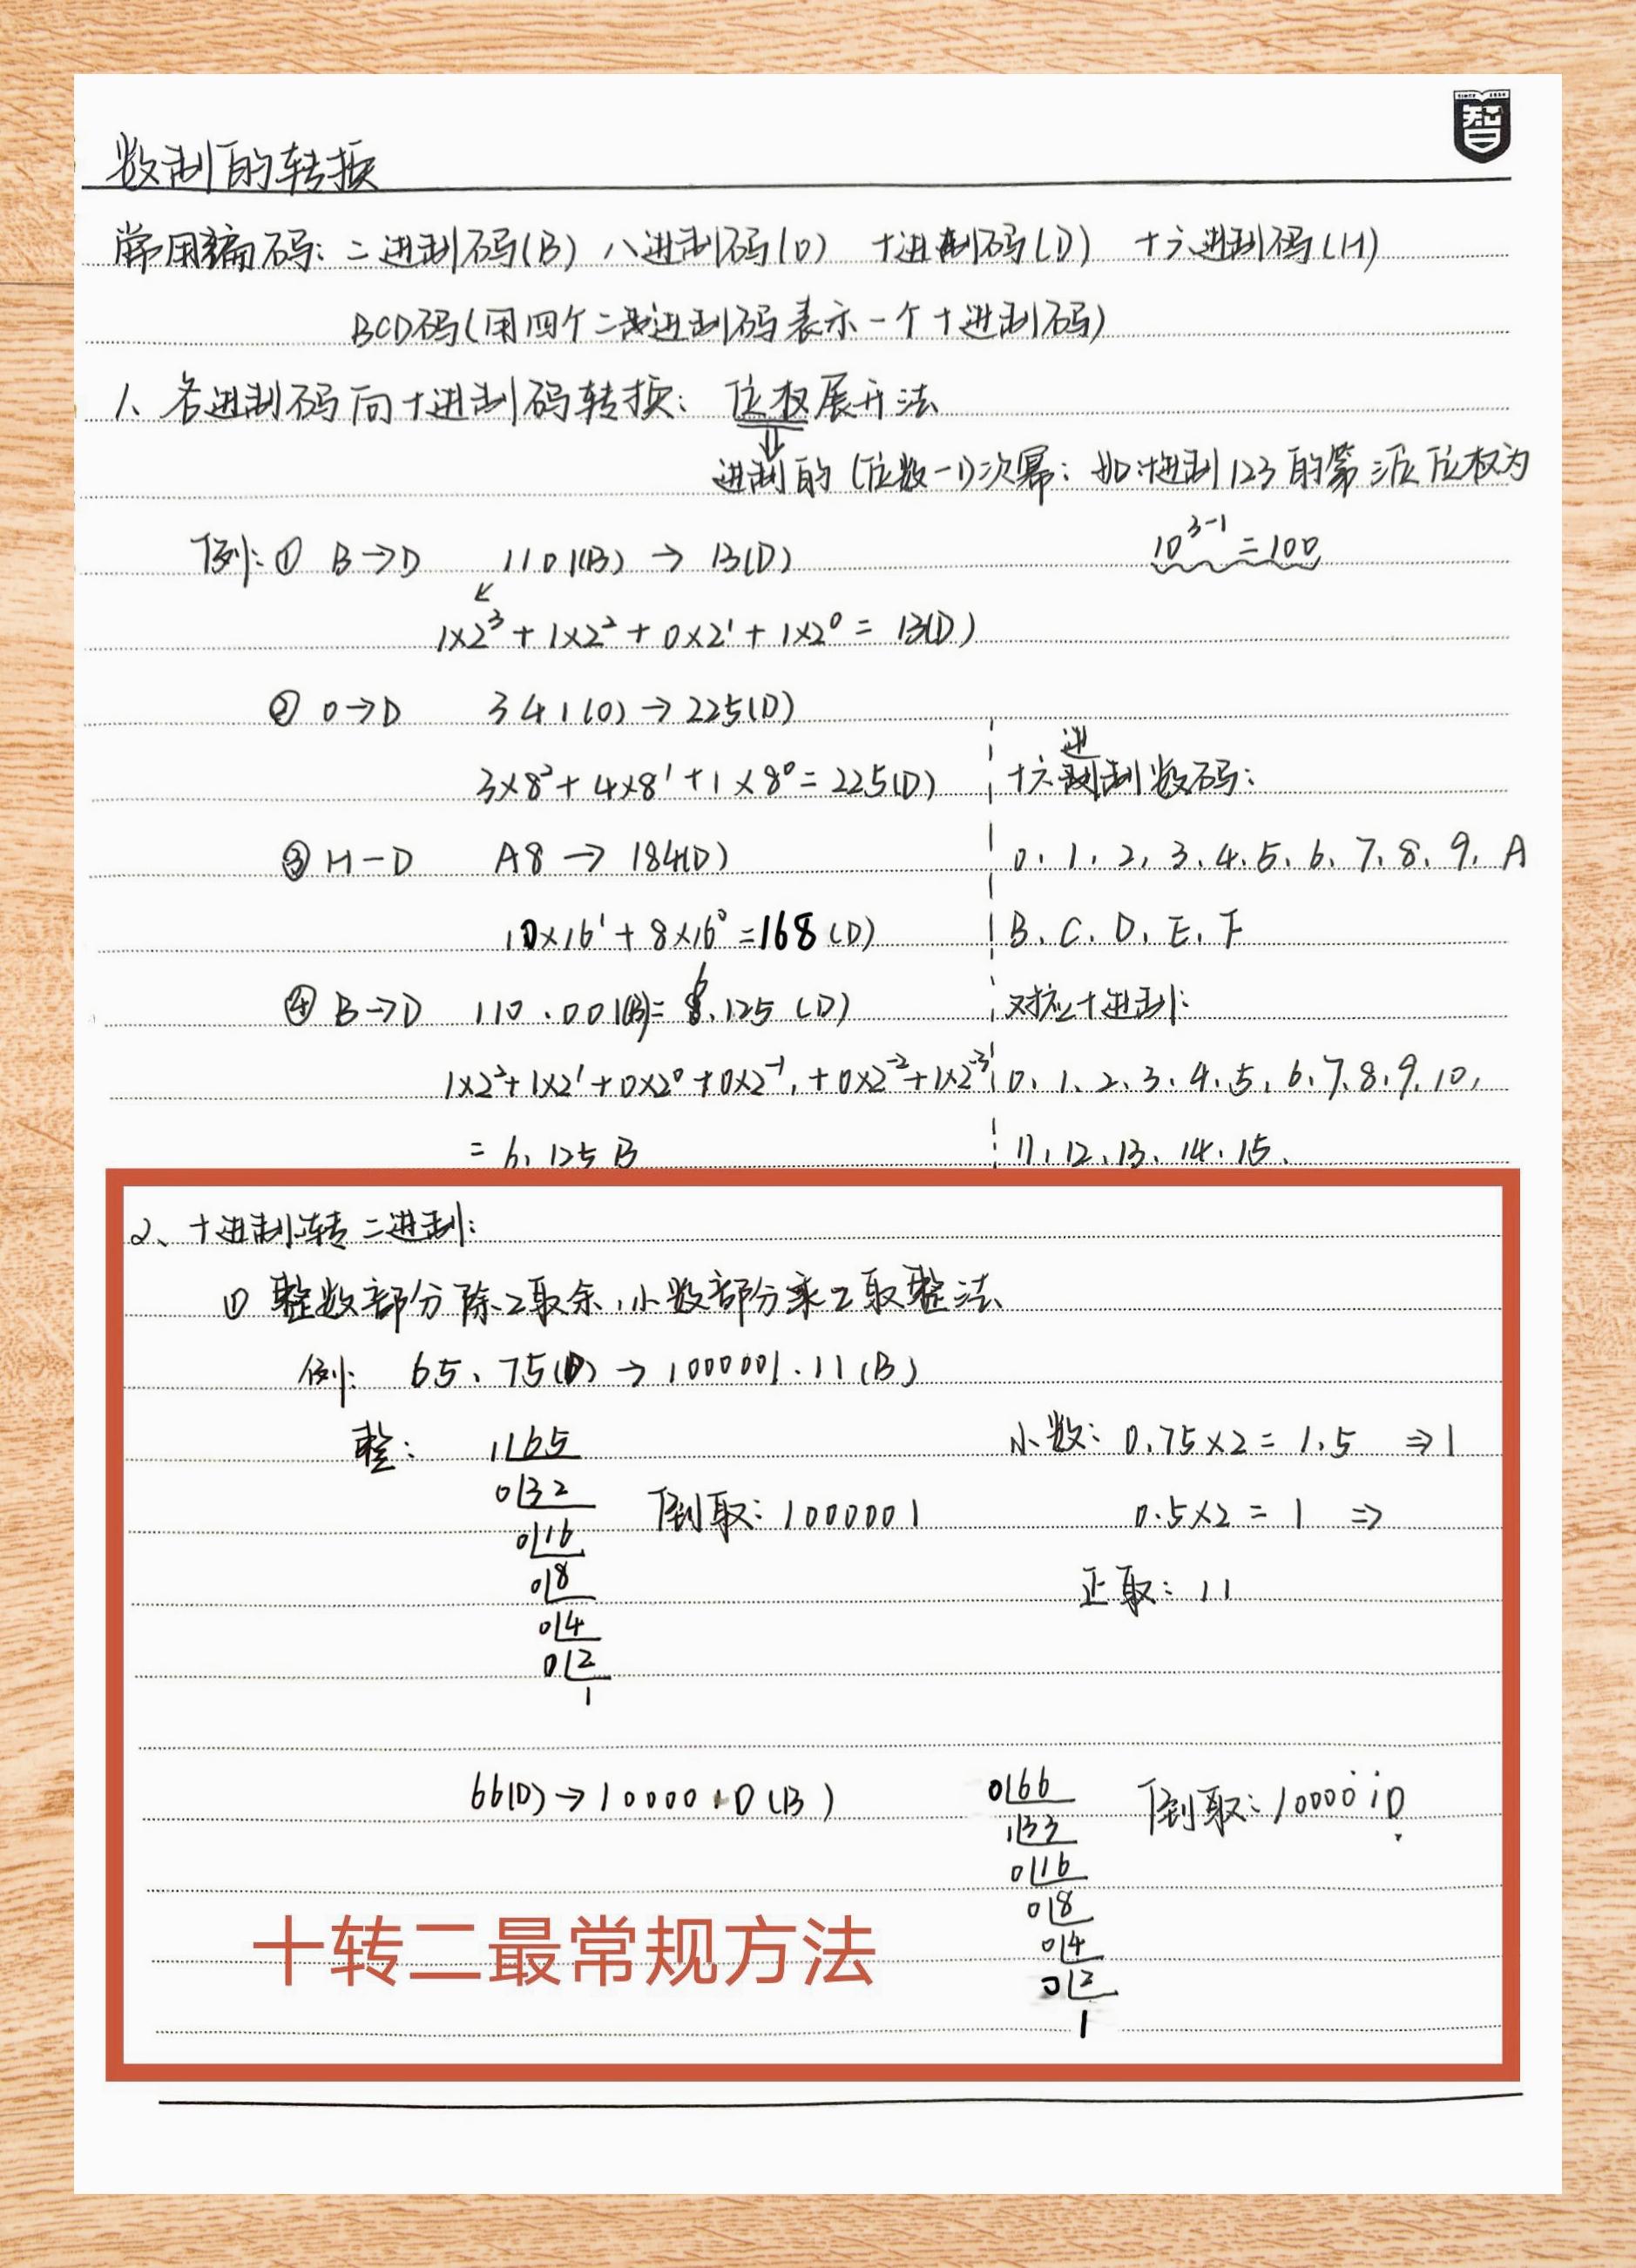 智
数制的转换
常用编码: 二进制码(B) 八进制码(O) 十进制码(D) 十六进制码(H)
BCD码(用四个二进制码表示一个十进制码)
1、各进制码向十进制码转换: 位权展开法
⇓
进制的(位数-1)次幂: 如:十进制123的第三位位权为
10³⁻¹=100
例: ① B→D 1101(B) → 13(D)
↙
1×2³ + 1×2² + 0×2¹ + 1×2⁰ = 13(D)
② O→D 341(O) → 225(D)
3×8² + 4×8¹ + 1×8⁰ = 225(D)
③ H-D A8 → 184(D)
10×16¹ + 8×16⁰ = 168(D)
④ B→D 110.001(B)= 6.125 (D)
1×2²+1×2¹+0×2⁰+0×2⁻¹+0×2⁻²+1×2⁻³
= 6.125 B
十六进制数码:
0、1、2、3、4、5、6、7、8、9、A
B、C、D、E、F
对应十进制:
0、1、2、3、4、5、6、7、8、9、10、
11、12、13、14、15、
2、十进制转二进制:
① 整数部分除2取余,小数部分乘2取整法
例: 65.75(D) → 1000001.11(B)
整: 1|65
0|32
0|16
0|8
0|4
0|2
1
倒取: 1000001
小数: 0.75×2 = 1.5 ⇒1
0.5×2 = 1 ⇒
正取: 11
66(D) → 1000010(B)
0|66
1|33
0|16
0|8
0|4
0|2
1
倒取: 1000010
十转二最常规方法